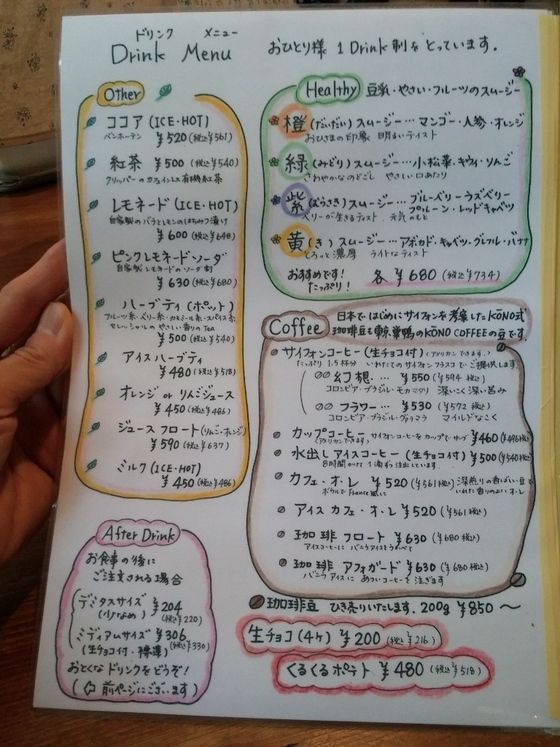 ドリンク メニュー
Drink Menu おひとり様 1 Drink 制をとっています.
Other
ココア (ICE・HOT)
バンホーテン ¥520 (税込¥561)
紅茶 ¥500 (税込¥540)
クリッパーのカフェインレス有機紅茶
レモネード (ICE・HOT)
自家製のバラとレモンのはちみつ漬け
¥600 (税込¥648)
ピンクレモネード・ソーダ
自家製レモネードのソーダ割
¥630 (税込¥680)
ハーブティ (ポット)
フルーツ系・ベリー系・カモミール系・スパイス系
セレッシャルのやさしい香りのTea
¥500 (税込¥540)
アイスハーブティ
¥480 (税込¥518)
オレンジ or りんごジュース
¥450 (税込¥486)
ジュースフロート (りんご・オレンジ)
¥590 (税込¥637)
ミルク (ICE・HOT)
¥450 (税込¥486)
After Drink
お食事の後に
ご注文される場合
デミタスサイズ ¥204
(少なめ) (税込¥220)
ミディアムサイズ ¥306
(生チョコ付・標準) (税込¥330)
おとくなドリンクをどうぞ!
(前ページにございます)
Healthy 豆乳・やさい・フルーツのスムージー
橙 (だいだい) スムージー… マンゴー・人参・オレンジ
おひさまの印象 明るいテイスト
緑 (みどり) スムージー… 小松菜・キウイ・りんご
さわやかなのどごし やさしい口あたり
紫 (むらさき) スムージー… ブルーベリー・ラズベリー
プルーン・レッドキャベツ
ベリーが生きるテイスト. 元気のもと
黄 (き) スムージー… アボカド・キャベツ・グレフル・バナナ
とろっと濃厚 ライトなテイスト
おすすめです!
たっぷり! 各 ¥680 (税込¥734)
Coffee 日本ではじめにサイフォンを考案したKŌNO式
珈琲豆も東京巣鴨のKŌNO COFFEEの豆です.
サイフォンコーヒー (生チョコ付) (アメリカンできます.)
たっぷり 1.5杯分 いれたてのサイフォンフラスコでご提供します.
幻想… ¥550 (¥594 税込)
コロンビア・ブラジル・モカマタリ 深いこく深い苦み
フラワー… ¥530 (¥572 税込)
コロンビア・ブラジル・グァテマラ マイルドなこく
カップコーヒー サイフォンコーヒーをカップで ¥460 (¥496税込)
(アメリカンできます.)
水出しアイスコーヒー (生チョコ付) ¥500 (¥540税込)
8時間かけて1滴ずつ注出しています
カフェ・オ・レ ¥520 (¥561税込)
ボウルでFrance風に
アイスカフェ・オ・レ ¥520 (¥561税込)
珈琲フロート ¥630 (¥680税込)
アイスコーヒーにバニラアイスをうかべて
珈琲アフォガード ¥630 (¥680税込)
バニラアイスにあついコーヒーを注ぎます
珈琲豆 ひき売りいたします. 200g ¥850 ～
生チョコ(4ケ) ¥200 (税込¥216)
くるくるポテト ¥480 (税込¥518)